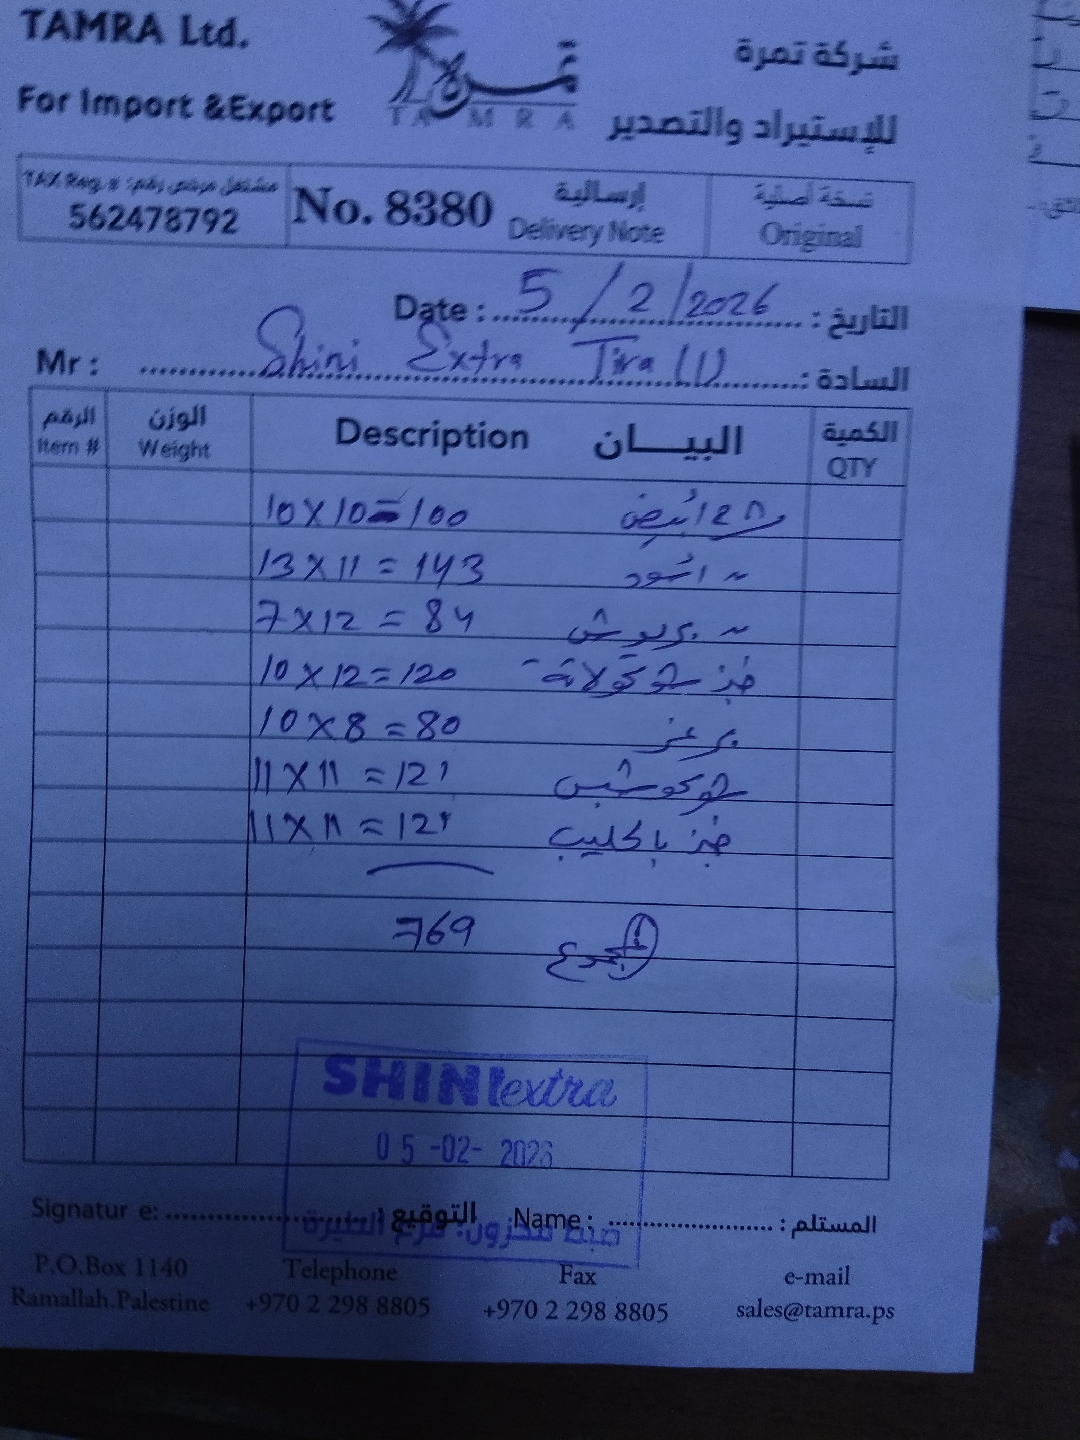 TAMRA Ltd.
شركة تمرة
For Import &Export
تمرة
TAMRA
للإستيراد والتصدير
TAX Reg. #: مشتغل مرخص رقم
562478792
No. 8380
إرسالية
Delivery Note
نسخة أصلية
Original
Date : 5 / 2 / 2026 التاريخ :
Mr : Shini Extra Tira (1) السادة :
الرقم الوزن Description البيـــان الكمية
Item # Weight QTY
10 X 10 = 100 ابيض
13 X 11 = 143 ~ اسود
7 X 12 = 84 ~ بريوش
10 X 12 = 120 خبز شوكولاتة
10 X 8 = 80 برغر
11 X 11 = 121 شوكوشبس
11 X 11 = 121 خبز بالحليب
769 المجموع
SHINI extra
05 -02- 2026
ضبط مخزون: فرع الطيرة
Signatur e: التوقيع : Name : المستلم :
P.O.Box 1140 Telephone Fax e-mail
Ramallah.Palestine +970 2 298 8805 +970 2 298 8805 sales@tamra.ps